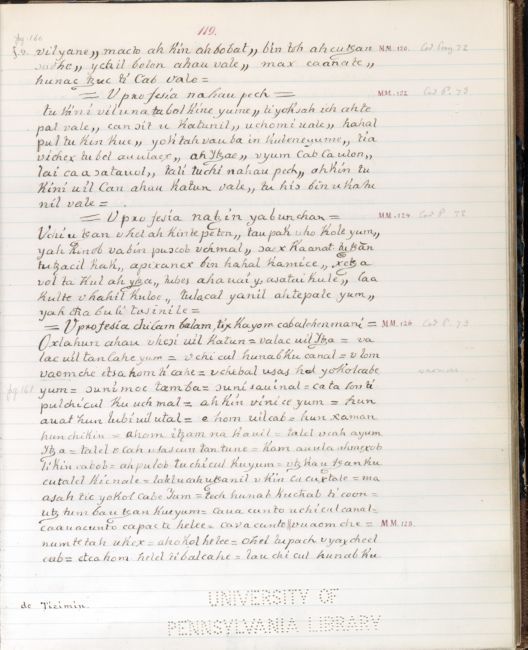 119.
pg. 160
§.o. vilyane,, macto ah kin ah bobat,, bin toh ah cutzan M.M. 120. Cod Perez 72
ychil bolon ahau vale,, max caanate,,
hunac tzuc ti Cab vale =
= U profesia nahau pech = M.M. 122. Cod P. 73
tu kini vil una tabol kine yume,, tiyoksah ich ahte
pal vale,, can sit u katunil,, uchomi uale,, hahal
pul tu kin kue,, yokitah vauba in kubeneyume,, tia
vichex tu bel aualaex,, ah Ytzae,, vyum Cab Caulon,,
lai caa satanol,, tali tuchi nahau pech,, ah kin tu
kini uil Can ahau Katun vale,, tu his bin ukatu
nil vale =
= U profesia nabin yabunchan = M.M. 124. Cod P. 72
Uchiu tzan vhel ah kinte peten,, tau pah vho kole yum,,
yah kinob vabin puscob vchmal,, Kaanat tu tzan
tutzacil kah,, apixanex bin hahal kamice,,
vol ta kul ah ytza,, hibes ahauai y, asatai kule,, laa
kulte vhahil kuloe,, tulacal yanil ahtepale yum,,
yah cha buli tasinile =
= U profesia chilam balam, tix kayom cabalchenmani = M.M. 126 Cod P. 73
Oxlahun ahau vhesi uil katun = valac uil Ytza = va
lac uil tancahe yum = vchicul hunabku canal = vlom
vaomche etsahom ti cahe = vchebal usas hal yokolcabe
pg. 161 yum = suni moc tamba = suni sauinal = cata lon ti
pulchicul ku uchmal = ahkin vinice yum = hun
auat hun lubi uil utal = ehom uilcab = hun xaman
hunchikin = ahom itzam na kauil = talel vcah ayum
Ytza = talel ucah asucun tantune = kam auula
tikin cabob = ahpulob tu chicul ku yum = utz kau tzanku
cutalel kicnale = laklu auh tzanil vkin cu cuxtale = ma
asah tic yokol cabe yum = toch hunab kuchab ti coon =
utz tum bau tzan kueyum = caua cunto uchicul canal =
caauacunto capacte helee = cava cunto vuaomche = M.M. 128.
numtetah ukex = ahokol helee = ohel tupach vyaxcheel
cab = etsahom helel tibalcahe = lau chicul hunabku
de Tizimin.
UNIVERSITY OF
PENNSYLVANIA LIBRARY